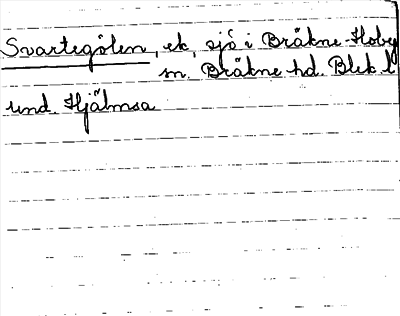 Svartegölen, ek, sjö i Bräkne-Hoby
sn. Bräkne hd. Blek. l
und. Hjälmsa